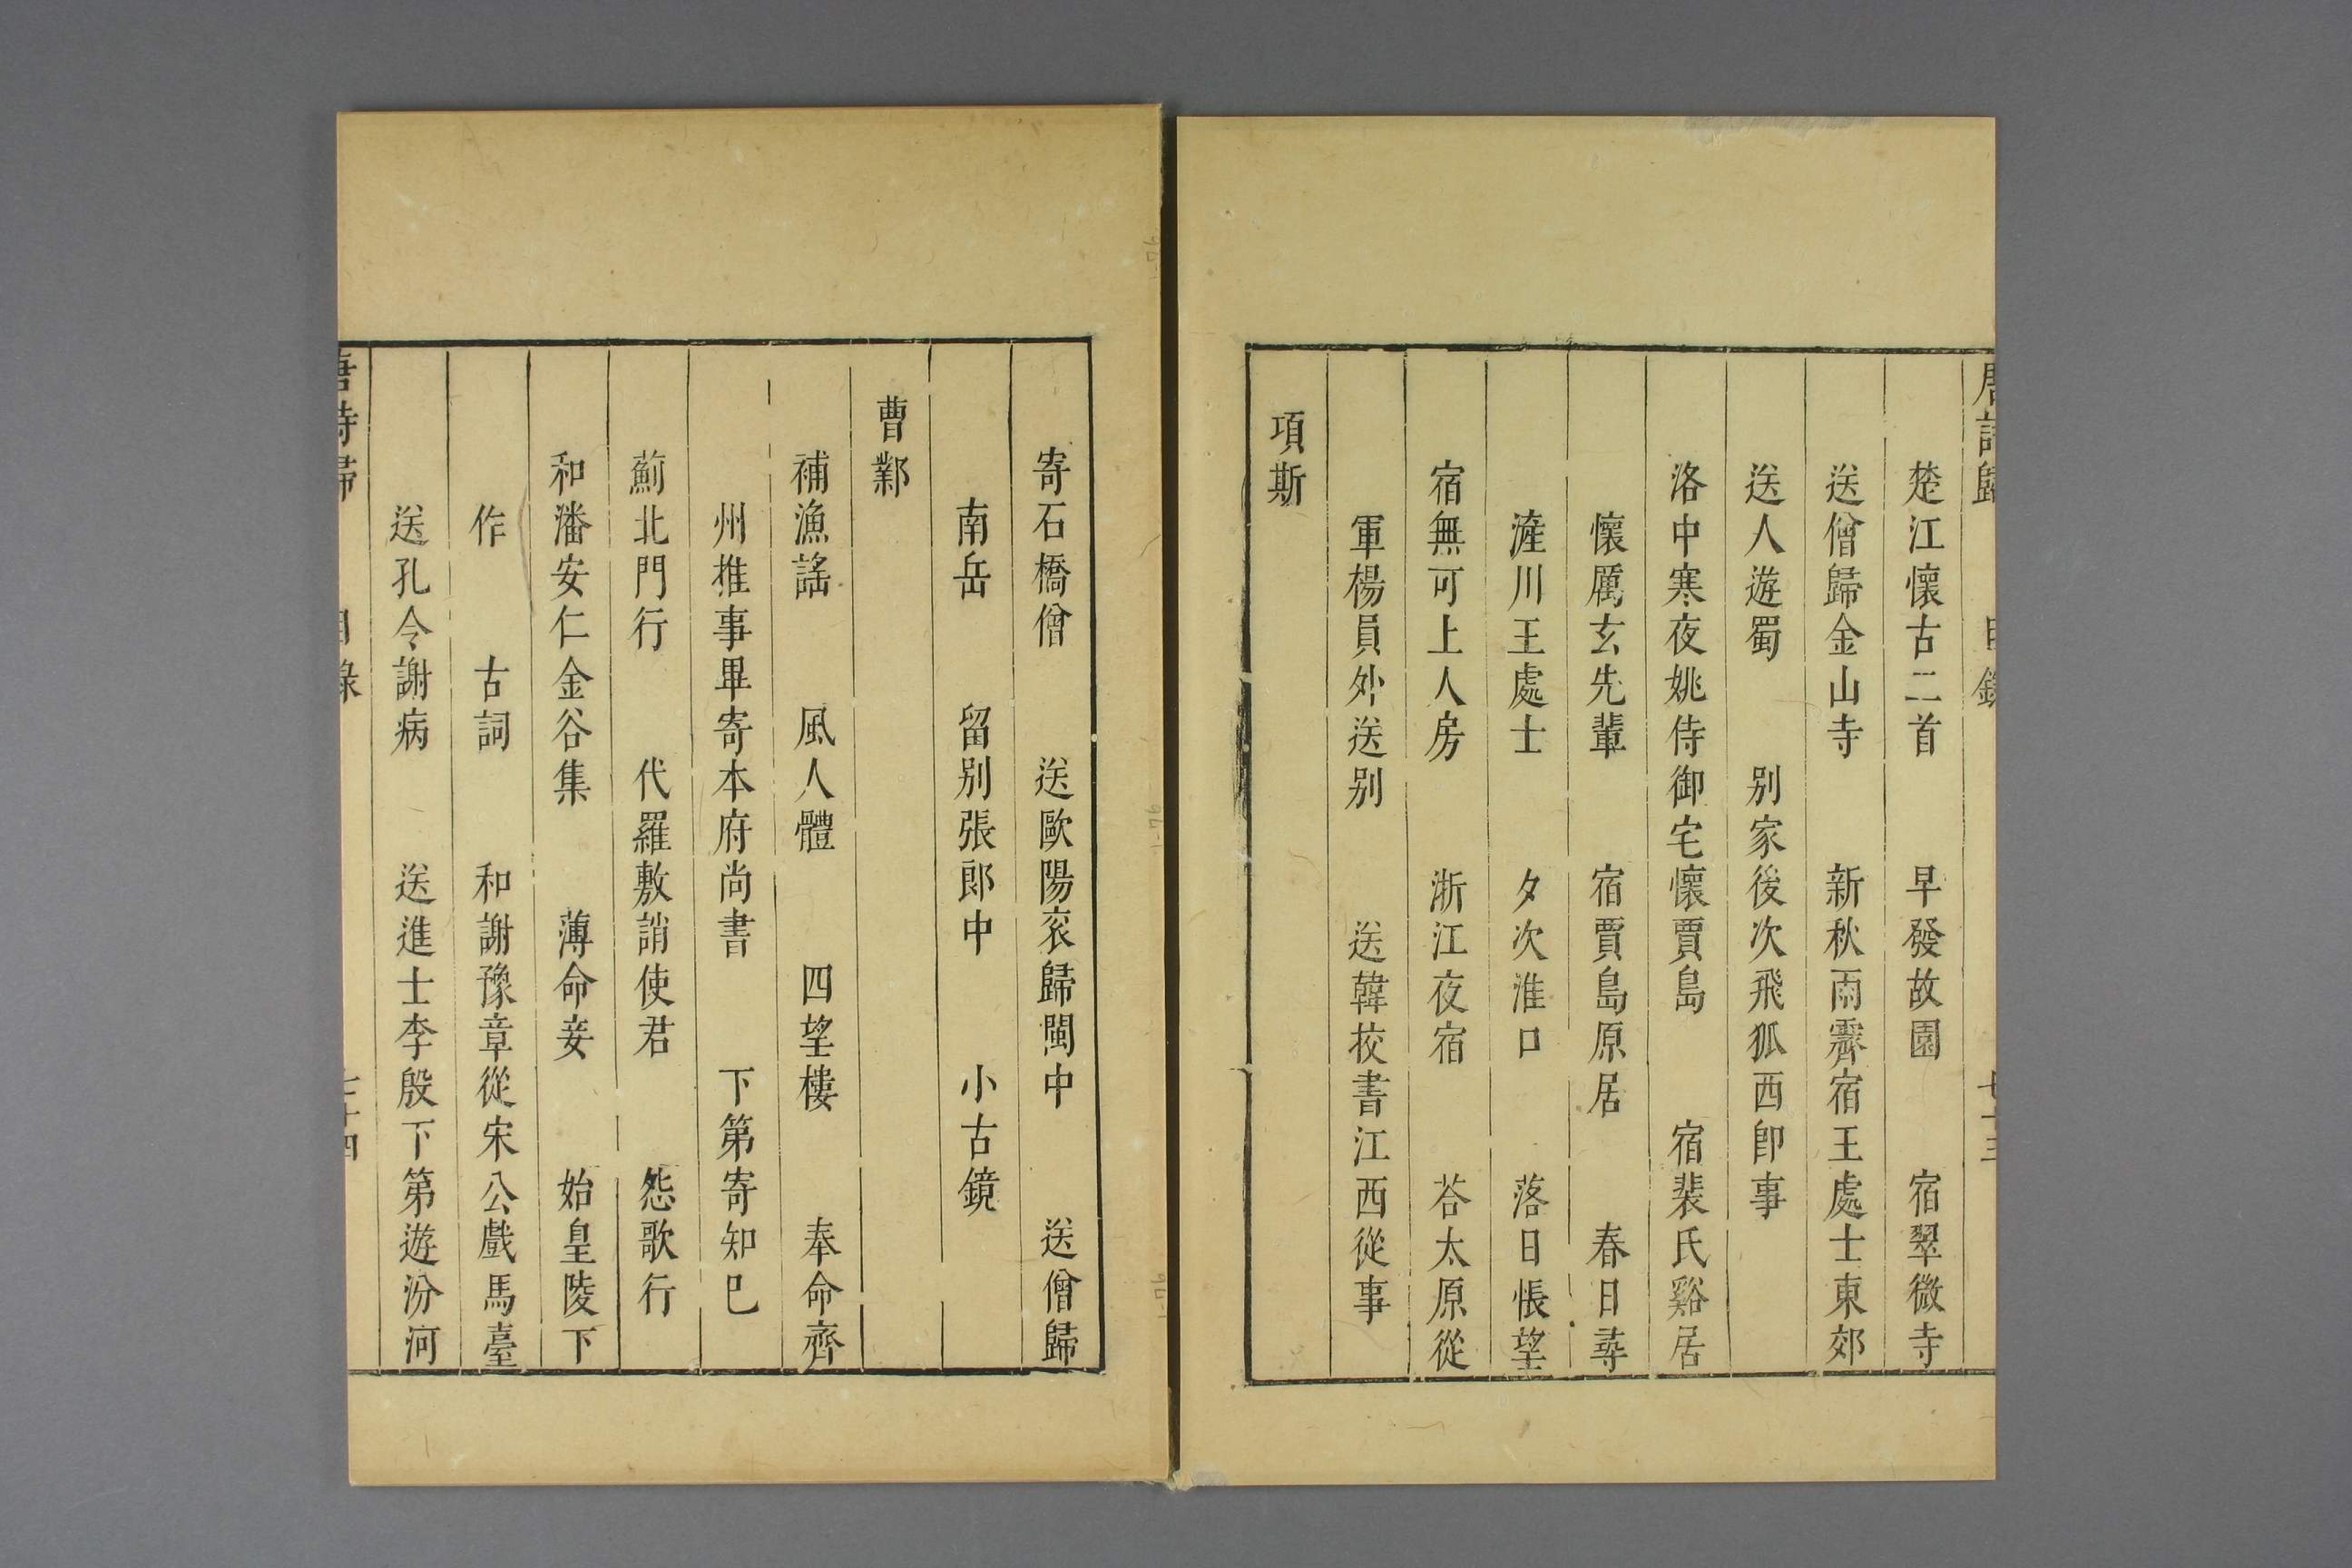 唐詩歸 目錄 七十三
楚江懷古二首 早發故園 宿翠微寺
送僧歸金山寺 新秋雨霽宿王處士東郊
送人遊蜀 別家後次飛狐西即事
洛中寒夜姚侍御宅懷賈島 宿裴氏谿居
懷厲玄先輩 宿賈島原居 春日尋
滻川王處士 夕次淮口 落日悵望
宿無可上人房 浙江夜宿 荅太原從
軍楊員外送別 送韓挍書江西從事
項斯
寄石橋僧 送歐陽衮歸閩中 送僧歸
南岳 留別張郎中 小古鏡
曹鄴
補漁謡 風人體 四望樓 奉命齊
州推事畢寄本府尚書 下第寄知已
薊北門行 代羅敷誚使君 怨歌行
和潘安仁金谷集 薄命妾 始皇陵下
作 古詞 和謝豫章從宋公戲馬臺
送孔令謝病 送進士李殷下第遊汾河
唐詩歸 目錄 七十四